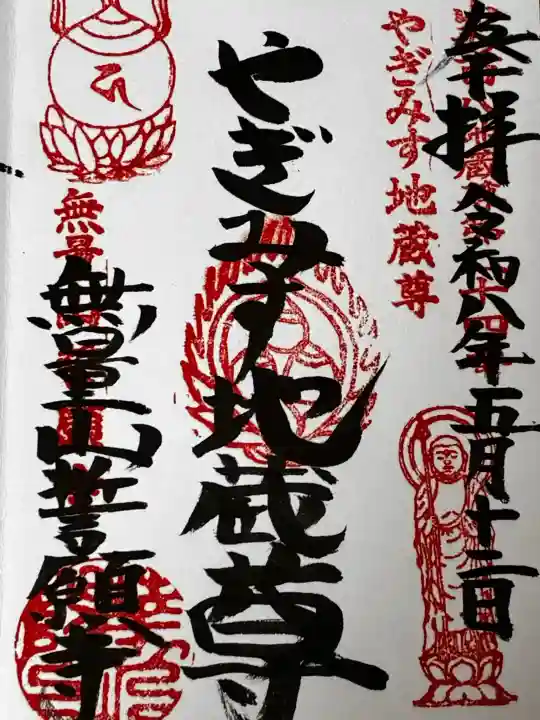 奉拝 令和八年五月十二日
やぎみす地蔵尊
やぎみす地蔵尊
無量
無量山誓願寺